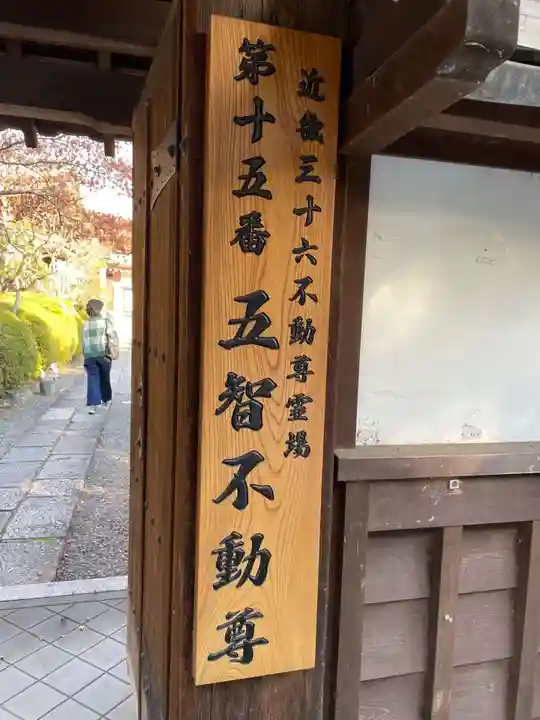 近畿三十六不動尊霊場
第十五番 五智不動尊